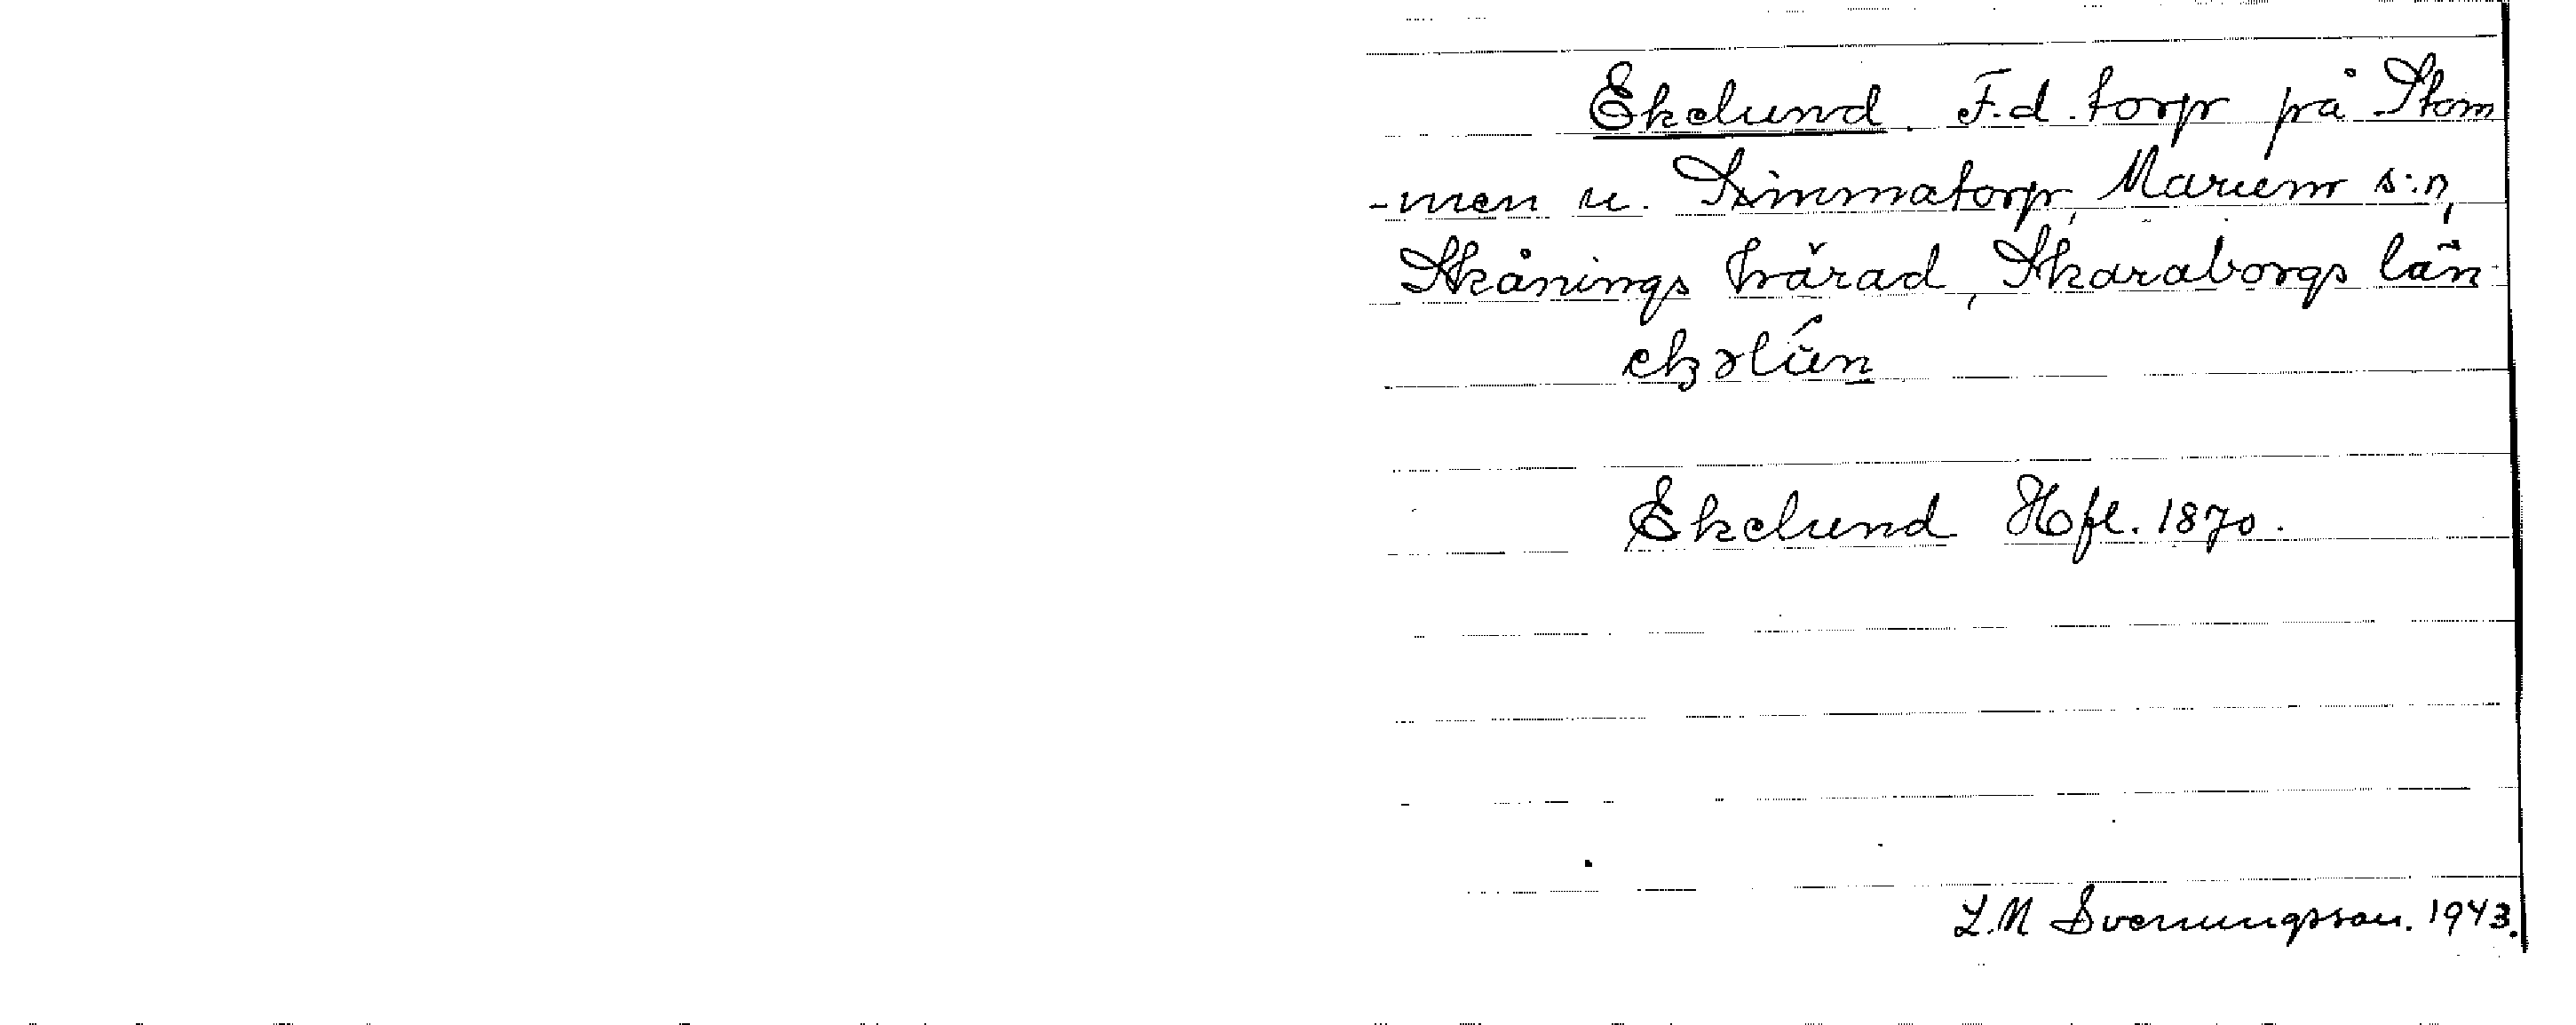 Ekelund. F.d. torp på Stom
-men u. Simmatorp, Marum s:n,
Skånings härad, Skaraborgs län
Ekelund Hfl. 1870.
L.M Svenungsson. 1943.